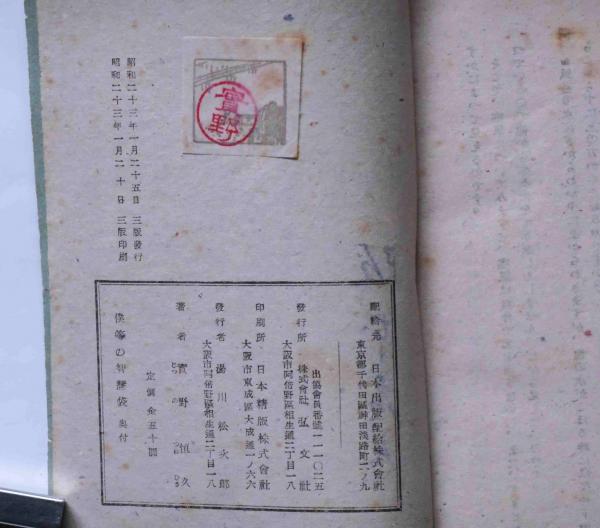 昭和二十三年一月二十五日 三版發行
昭和二十三年一月二十日 三版印刷
實野
配給元 日本出版配給株式會社
東京都千代田區神田淡路町二ノ九
出協會員番號
發行所 株式會社 弘文社
大阪市阿倍野區相生通二丁目一八
印刷所 日本精版株式會社
大阪市東成區大成通一ノ六六
發行者 湯川松次郎
大阪市阿倍野區相生通二丁目一八
著者 實野恒久
定價金五十圓
僕等の智慧袋 奥付